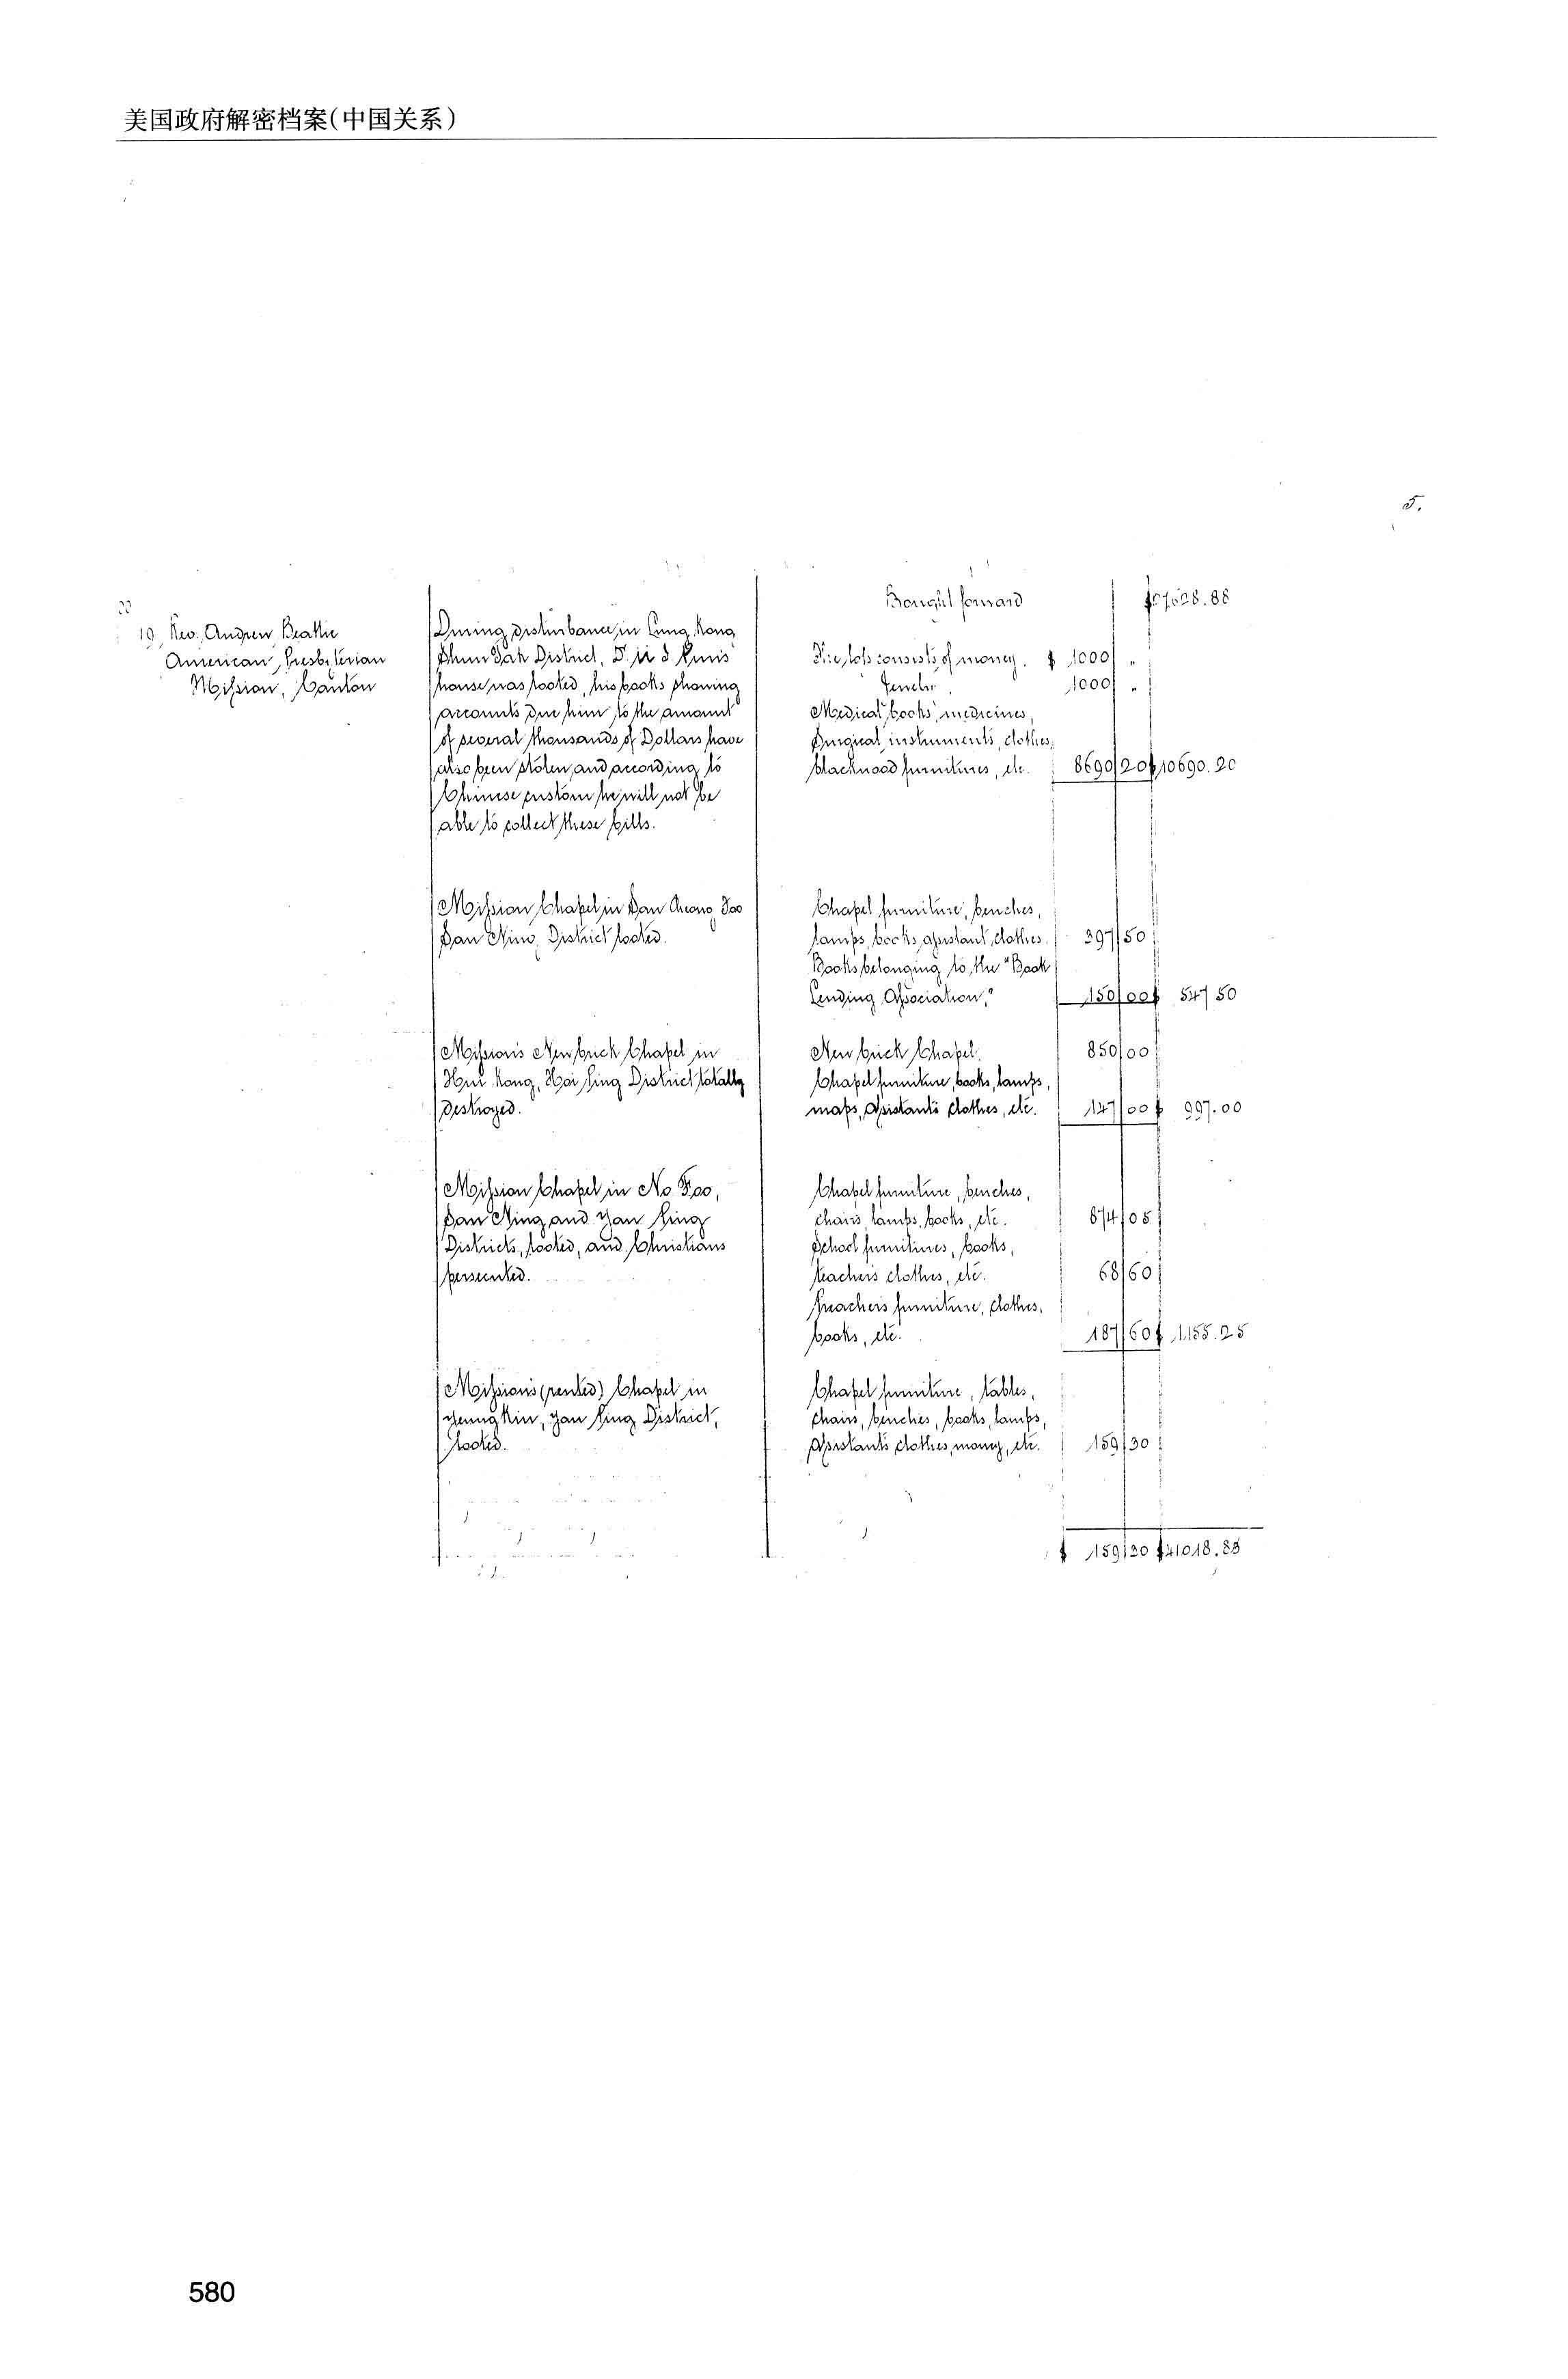 美国政府解密档案(中国关系)
5.
Bought forward
19. Rev. Andrew Beattie
American Presbyterian
Mission, Canton
During disturbance in Lung Kong
Shun Tak District,
house was looted, his books showing
accounts due him to the amount
of several thousands of Dollars have
also been stolen, and according to
Chinese custom he will not be
able to collect these bills.
The loss consists of money. $ 1000 "
Jewelry. 1000 "
Medical books, medicines,
Surgical instruments, clothes,
blackwood furnitures, etc. 8690 20 $10690.20
Mission Chapel in San
San Ning District looted.
Chapel furniture, benches,
lamps, books, assistant clothes. 397 50
Books belonging to the "Book
Lending Association." 150 00 $ 547 50
Mission's New brick Chapel in
Hui Kong, Hoi Ping District totally
destroyed.
New brick Chapel. 850 00
Chapel furniture, books, lamps,
maps, assistant's clothes, etc. 147 00 $ 997.00
Mission Chapel in No Foo,
San Ning and Yan Ping
Districts, looted, and Christians
persecuted.
Chapel furniture, benches,
chairs, lamps, books, etc. 874 05
School furnitures, books,
teacher's clothes, etc. 68 60
Preacher's furniture, clothes,
books, etc. 187 60 $ 1155.25
Mission's (rented) Chapel in
Yeung Kin, Yan Ping District,
looted.
Chapel furniture, tables,
chairs, benches, books, lamps,
Assistant's clothes, money, etc. 159 30
$ 159 30 $41018.83
580